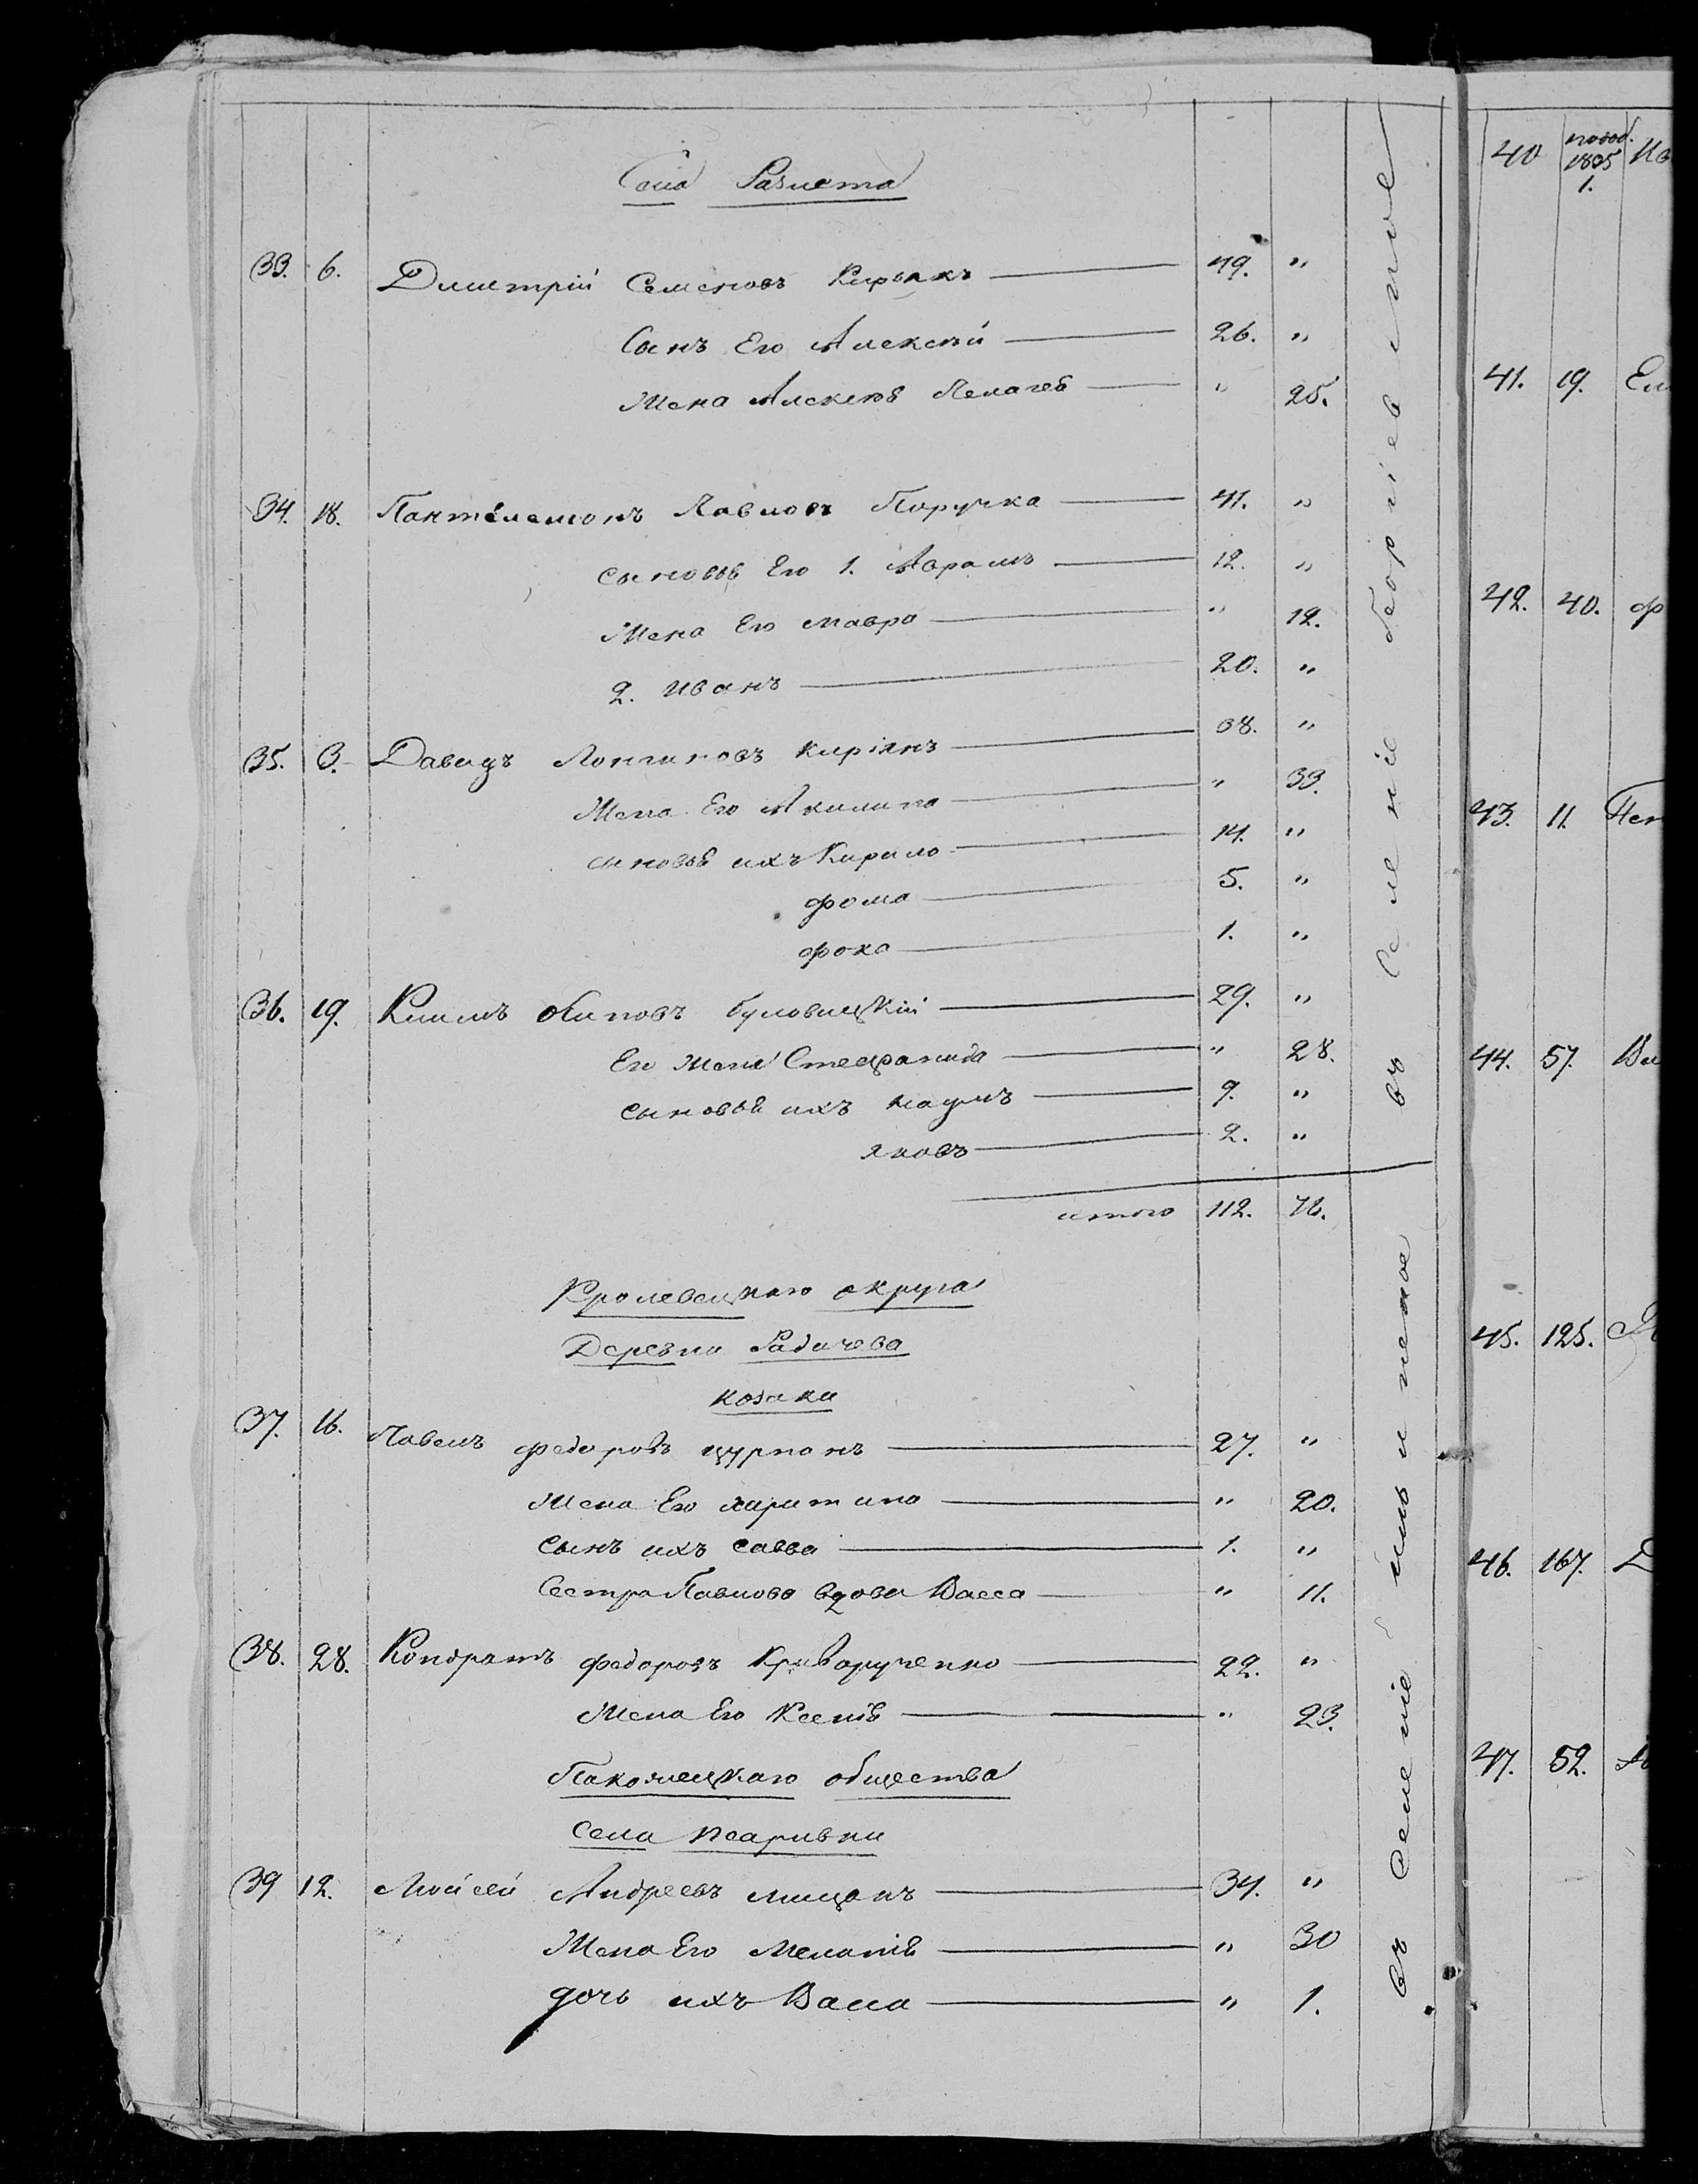 Села Разлета
33. 6. Димитрій Семеновъ Кирьякъ 49. "
Сынъ Его Алексѣй 26. "
Жена Алексѣя Пелагея " 25.
34. 18. Пантелемонъ Павловъ Поручка 41. "
сыновья Его 1. Аврамъ 12. "
Жена Его мавра " 12.
2. Иванъ 20. "
35. 3. Давидъ Лонгиновъ кирiянъ 38. "
Жена Его Акилина " 33.
сыновья ихъ Кирило 14. "
фома 5. "
фока 1. "
36. 19. Климъ Осиповъ Буловицкій 29. "
Его Жена Стефанида " 28.
сыновья ихъ наумъ 9. "
яковъ 2. "
итого 112. 76.
Кролевецкаго округа
Деревни Радичева
козаки
37. 16. Павелъ федоровъ цурканъ 27. "
Жена Его харитина " 20.
Сынъ ихъ савва 1. "
Сестра Павлова вдова Васса " 11.
38. 28. Кондратъ федоровъ Криворученко 22. "
Жена Его Ксенія " 23.
общества
Села псаривки
39 12. Моисей Андреевъ мицанъ 34. "
Жена Его Меланія " 30
дочь ихъ Васса " 1.
въ Селеніе Георгіевское
въ Селеніе
40 1835 1.
41. 19.
42. 40.
43. 11.
44. 57.
45. 125.
46. 167.
47. 52.